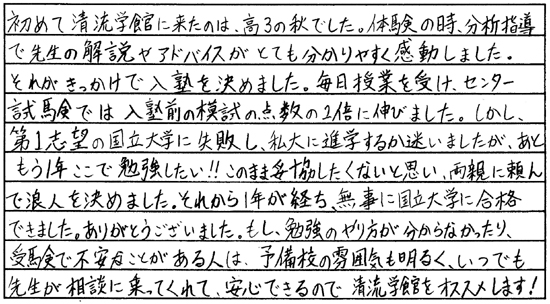 初めて清流学館に来たのは、高3の秋でした。体験の時、分析指導
で先生の解説やアドバイスがとても分かりやすく感動しました。
それがきっかけで入塾を決めました。毎日授業を受け、センター
試験では入塾前の模試の点数の2倍に伸びました。しかし、
第1志望の国立大学に失敗し、私大に進学するか迷いましたが、あと
もう1年ここで勉強したい!!このまま妥協したくないと思い、両親に頼ん
で浪人を決めました。それから1年が経ち、無事に国立大学に合格
できました。ありがとうございました。もし、勉強のやり方が分からなかったり、
受験で不安なことがある人は、予備校の雰囲気も明るく、いつでも
先生が相談に乗ってくれて、安心できるので清流学館をオススメします!